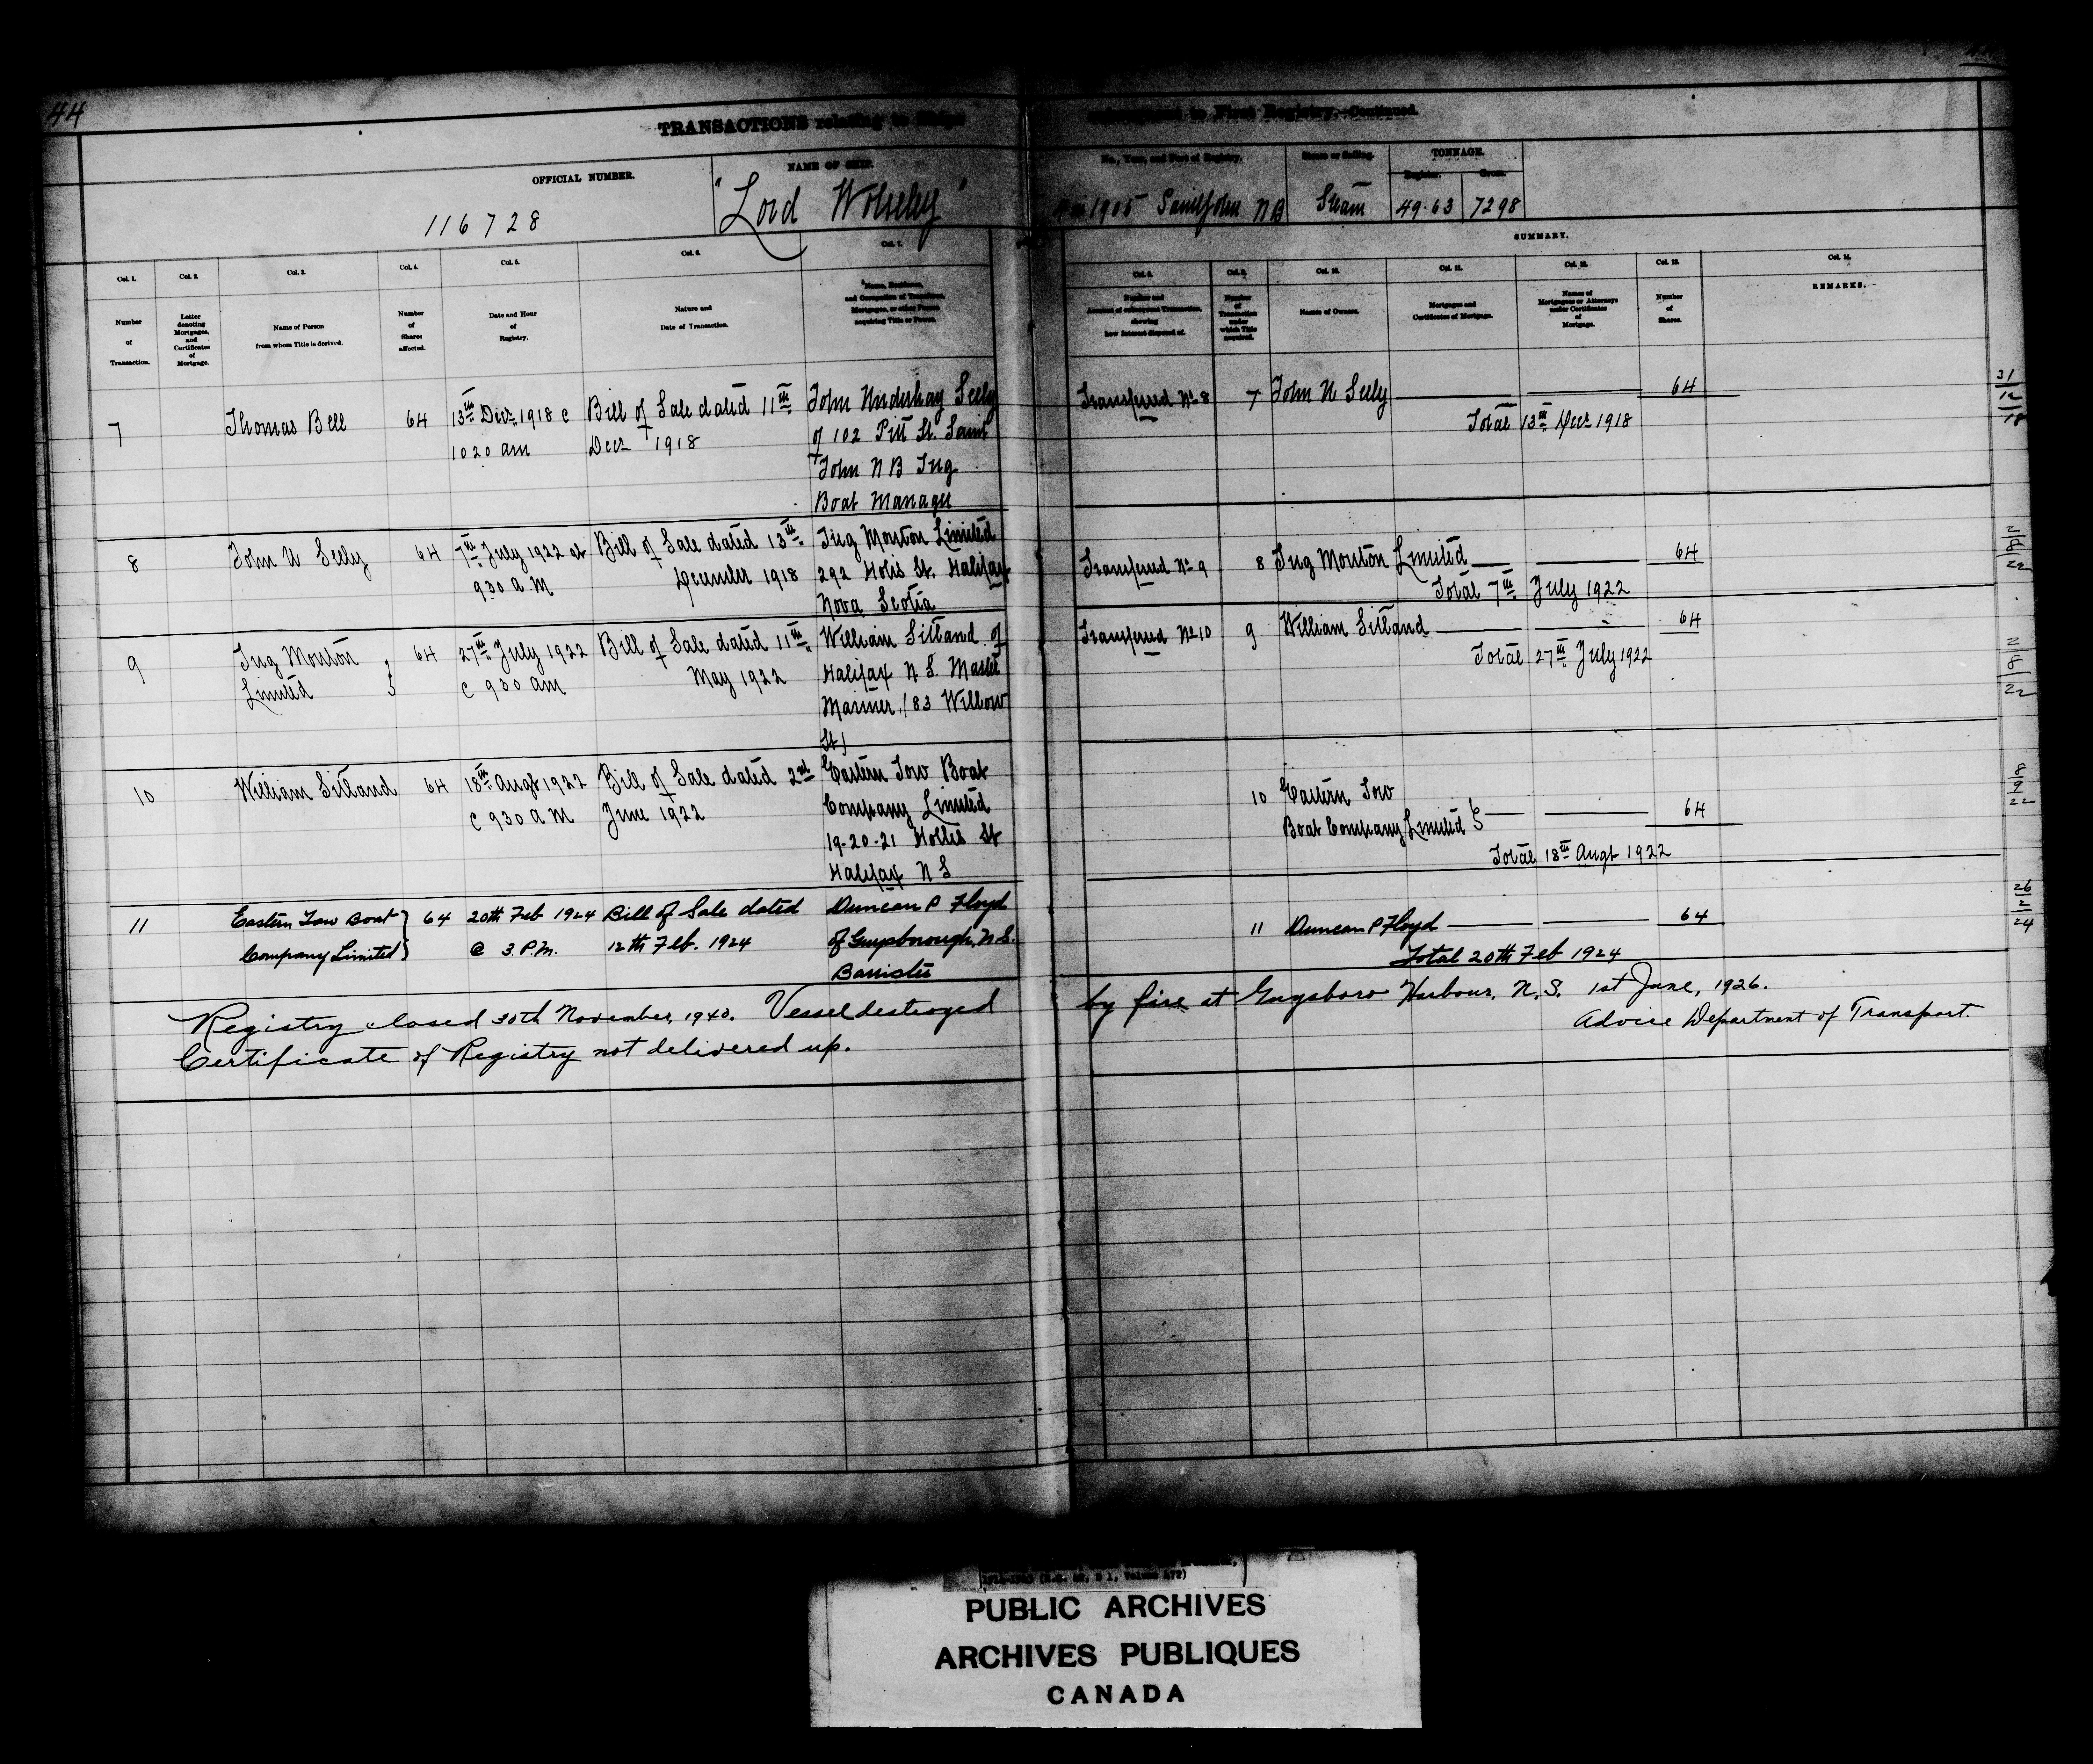 44
TRANSACTIONS relating to Ships
subsequent to First Registry,—Continued.
OFFICIAL NUMBER.
116728
NAME OF SHIP.
"Lord Wolseley"
No., Year, and Port of Registry.
1905 Saint John NB
Steam or Sailing.
Steam
TONNAGE.
Register.
49.63
Gross.
7298
SUMMARY.
Col. 1.
Number
of
Transaction.
Col. 2.
Letter
denoting
Mortgages,
and
Certificates
of
Mortgage.
Col. 3.
Name of Person
from whom Title is derived.
Col. 4.
Number
of
Shares
affected.
Col. 5.
Date and Hour
of
Registry.
Col. 6.
Nature and
Date of Transaction.
Col. 7.
Name, Residence,
and Occupation of Transferee,
Mortgagee, or other Person
acquiring Title or Power.
Col. 8.
Number and
Account of subsequent Transaction,
showing
how Interest disposed of.
Col. 9.
Number
of
Transaction
under
which Title
acquired.
Col. 10.
Names of Owners.
Col. 11.
Mortgages and
Certificates of Mortgage.
Col. 12.
Names of
Mortgagees or Attorneys
under Certificates
of
Mortgage.
Col. 13.
Number
of
Shares.
Col. 14.
REMARKS.
7
Thomas Bell
64
13th Decr 1918 @
1020 am
Bill of Sale dated 11th
Decr 1918
John Underhay Seely
of 102 Pitt St. Saint
John NB Tug
Boat Manager
Transferred No 8
7
John U Seely
64
Total 13th Decr 1918
31
12
18
8
John U Seely
64
7th July 1922 at
930 a.m
Bill of Sale dated 13th
December 1918
Tug Mouton Limited
292 Holis St. Halifax
Nova Scotia
Transferred No 9
8 Tug Mouton Limited
64
Total 7th July 1922
9
Tug Mouton
Limited
64
27th July 1922
@ 930 am
Bill of Sale dated 11th
May 1922
William Sitland of
Halifax N S. Master
Mariner, (83 Willow
St)
Transferred No 10
9
William Sitland
64
Total 27th July 1922
2
8
22
10
William Sitland
64
18th Augt 1922
@ 930 a m
Bill of Sale dated 2nd
June 1922
Eastern Tow Boat
Company Limited
19-20-21 Hollis St
Halifax N S
10 Eastern Tow
Boat Company Limited
64
Total 18th Augt 1922
8
9
22
11
Eastern Tow Boat
Company Limited
64
20th Feb 1924
@ 3. P.M.
Bill of Sale dated
12th Feb. 1924
Duncan P Floyd
of Guysborough, N.S.
Barrister
11 Duncan P Floyd
64
Total 20th Feb 1924
26
2
24
Registry closed 30th November, 1940. Vessel destroyed by fire at Guysboro Harbour, N.S. 1st June, 1926.
Certificate of Registry not delivered up. Advice Department of Transport.
PUBLIC ARCHIVES
ARCHIVES PUBLIQUES
CANADA